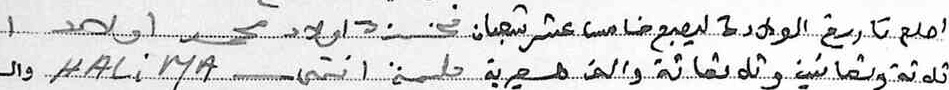 اصلح تاريخ الولادة ليصبح خامس عشر شعبان فخذة اولاد محمد اولاد ا
ثلاثة وثمانين وثلاثمائة والف هجرية حليمة انتهى HALiMA وال